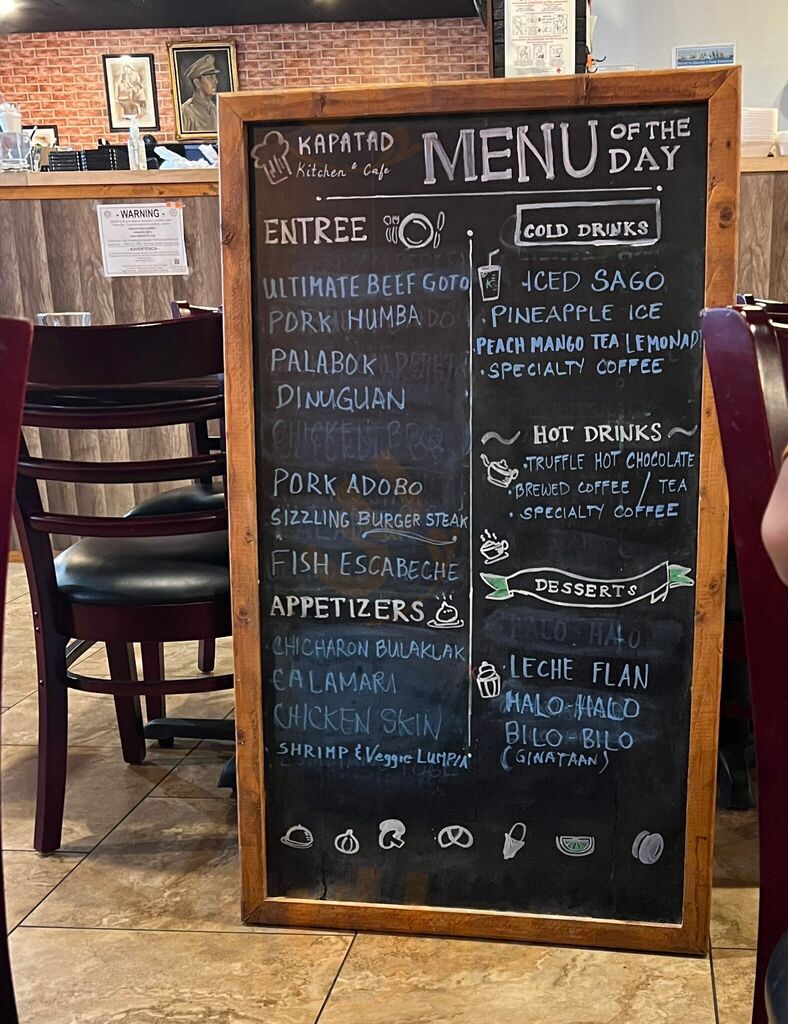 KAPATAD
Kitchen & Cafe
MENU OF THE DAY
ENTREE
ULTIMATE BEEF GOTO
PORK HUMBA
PALABOK
DINUGUAN
CHICKEN BBQ
PORK ADOBO
SIZZLING BURGER STEAK
FISH ESCABECHE
APPETIZERS
CHICHARON BULAKLAK
CALAMARI
CHICKEN SKIN
SHRIMP & Veggie LUMPIA
COLD DRINKS
ICED SAGO
PINEAPPLE ICE
PEACH MANGO TEA LEMONAD
SPECIALTY COFFEE
HOT DRINKS
TRUFFLE HOT CHOCOLATE
BREWED COFFEE / TEA
SPECIALTY COFFEE
DESSERTS
HALO HALO
LECHE FLAN
HALO-HALO
BILO-BILO
(GINATAAN)
WARNING
ADVERTENCIA